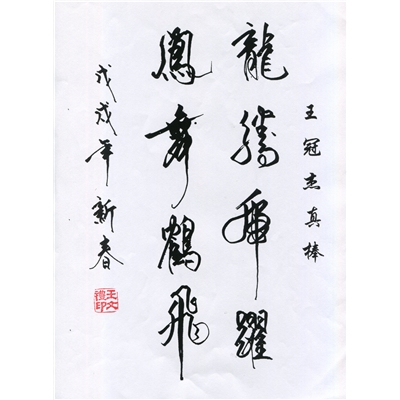 王冠杰真棒
龍騰虎躍
鳳舞鶴飛
戊戌年新春
王文禮印